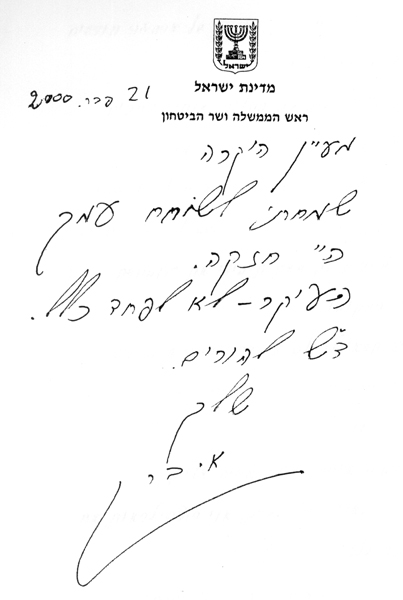 ישראל
מדינת ישראל
21 פבר. 2000
ראש הממשלה ושר הביטחון
מעיין היקרה
שמחתי לשוחח עמך
היי חזקה.
העיקר - לא לפחד כלל.
ד"ש להורים.
שלך